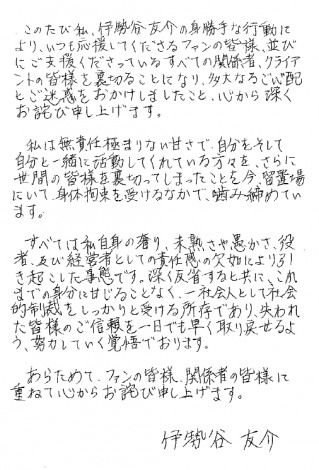 このたび私、伊勢谷友介の身勝手な行動に
より、いつも応援してくださるファンの皆様、並び
にご支援くださっているすべての関係者、クライア
ントの皆様を裏切ることになり、多大なるご心配
とご迷惑をおかけしましたこと、心から深く
お詫び申し上げます。
私は無責任極まりない甘さで、自分をそして
自分と一緒に活動してくれている方々を、さらに
世間の皆様を裏切ってしまったことを今、留置場
にいて、身体拘束を受けるなかで、噛み締めてい
ます。
すべては私自身の奢り、未熟さや愚かさ、役
者、及び経営者としての責任感の欠如により引
き起こした事態です。深く反省すると共に、これ
までの身分に甘じることなく、一社会人として社会
的制裁をしっかりと受ける所存であり、失われ
た皆様のご信頼を一日でも早く取り戻せるよ
う、努力していく覚悟でおります。
あらためて、ファンの皆様、関係者の皆様に
重ねて心からお詫び申し上げます。
伊勢谷 友介